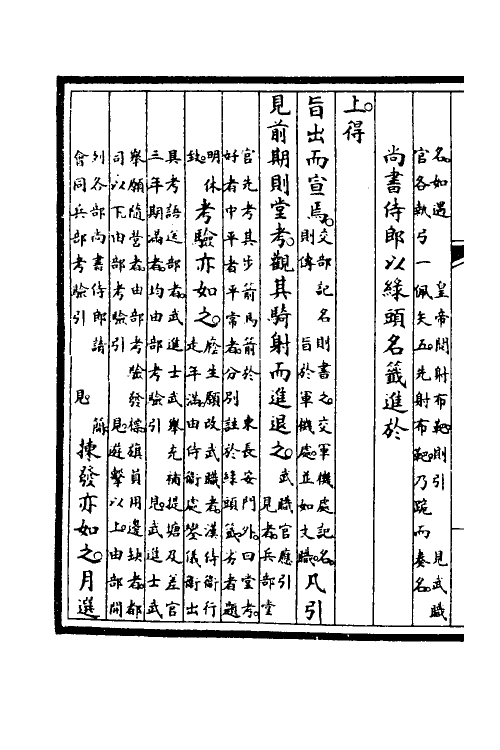 名如遇　皇帝閱射布靶則引　見武職
官各執弓一佩矢五先射布靶乃跪而奏名
尚書侍郎以綠頭名籤進於
上得
旨出而宣焉交部記名則書之交軍機處記名則傳　旨於軍機處並如文職凡引
見前期則堂考觀其騎射而進退之武職官應引見者兵部堂
官先考其步箭馬箭於　東長安門外曰堂考
好者中平者平常者分別註於綠頭籤劣者題
明休致考驗亦如之廕生願改武職者漢侍衛行走年滿由侍衛處鑾儀衛出
具考語送部者武進士武舉充補提塘及差官
三年期滿者均由部考驗引　見武進士武
舉願隨營者由部考驗發標旗員用邊缺者都
司以下由部考驗引　見遊擊以上由部開
列各部尚書侍郎請　簡會同兵部考驗引　見揀發亦如之月選